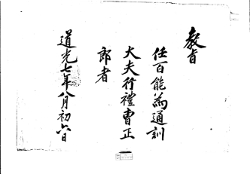 教旨
任百能為通訓
大夫行禮曹正
郎者
道光七年八月初六日